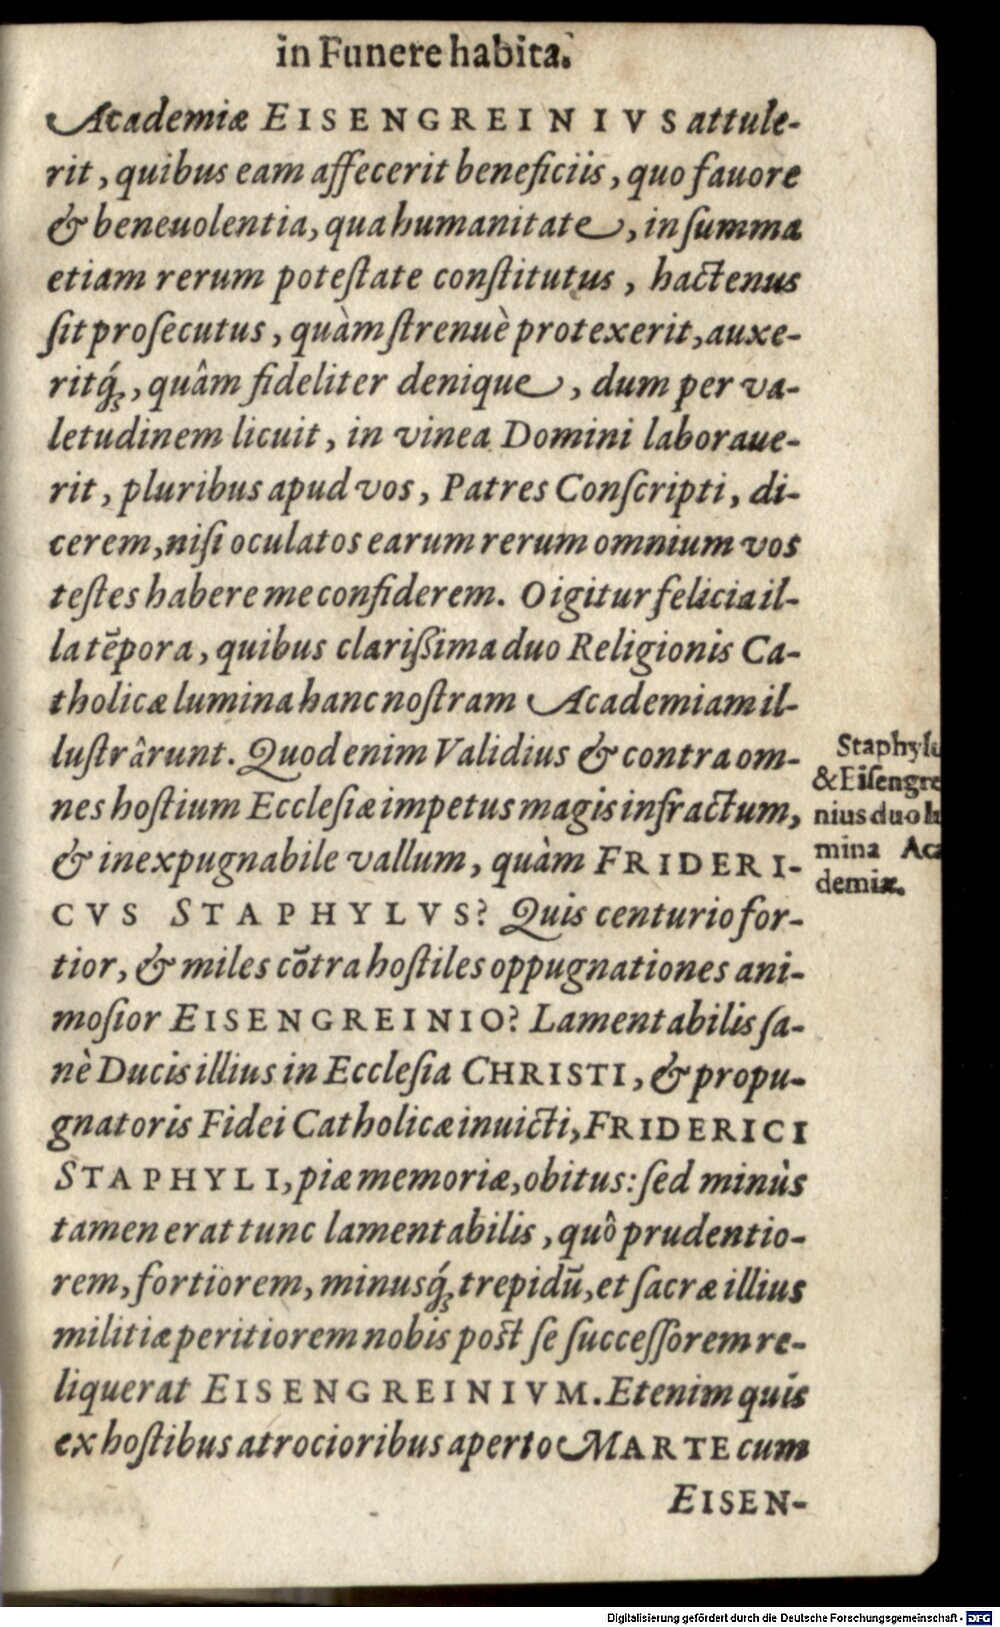 in Funere habita.
Academiæ EISENGREINIVS attule-
rit, quibus eam affecerit beneficiis, quo fauore
& beneuolentia, qua humanitate, in ſumma
etiam rerum poteſtate conſtitutus, hactenus
ſit proſecutus, quàm ſtrenuè protexerit, auxe-
ritq́ꝫ, quâm fideliter denique, dum per va-
letudinem licuit, in vinea Domini laboraue-
rit, pluribus apud vos, Patres Conſcripti, di-
cerem, niſi oculatos earum rerum omnium vos
teſtes habere me confiderem. O igitur felicia il-
la tẽpora, quibus clariſsima duo Religionis Ca-
tholicæ lumina hanc noſtram Academiam il-
luſtrârunt. Quod enim Validius & contra om-
nes hoſtium Eccleſiæ impetus magis infractum,
& inexpugnabile vallum, quàm FRIDERI-
CVS STAPHYLVS? Quis centurio for-
tior, & miles cõtra hoſtiles oppugnationes ani-
moſior EISENGREINIO? Lamentabilis ſa-
nè Ducis illius in Eccleſia CHRISTI, & propu-
gnatoris Fidei Catholicæ inuicti, FRIDERICI
STAPHYLI, piæ memoriæ, obitus: ſed minùs
tamen erat tunc lamentabilis, quô prudentio-
rem, fortiorem, minusq́ꝫ trepidũ, et ſacræ illius
militiæ peritiorem nobis poſt ſe ſucceſſorem re-
liquerat EISENGREINIVM. Etenim quis
ex hoſtibus atrocioribus aperto MARTE cum
EISEN-
Staphylu
& Eiſengre
nius duo lu
mina Aca
demiæ.
Digitalisierung gefördert durch die Deutsche Forschungsgemeinschaft - DFG